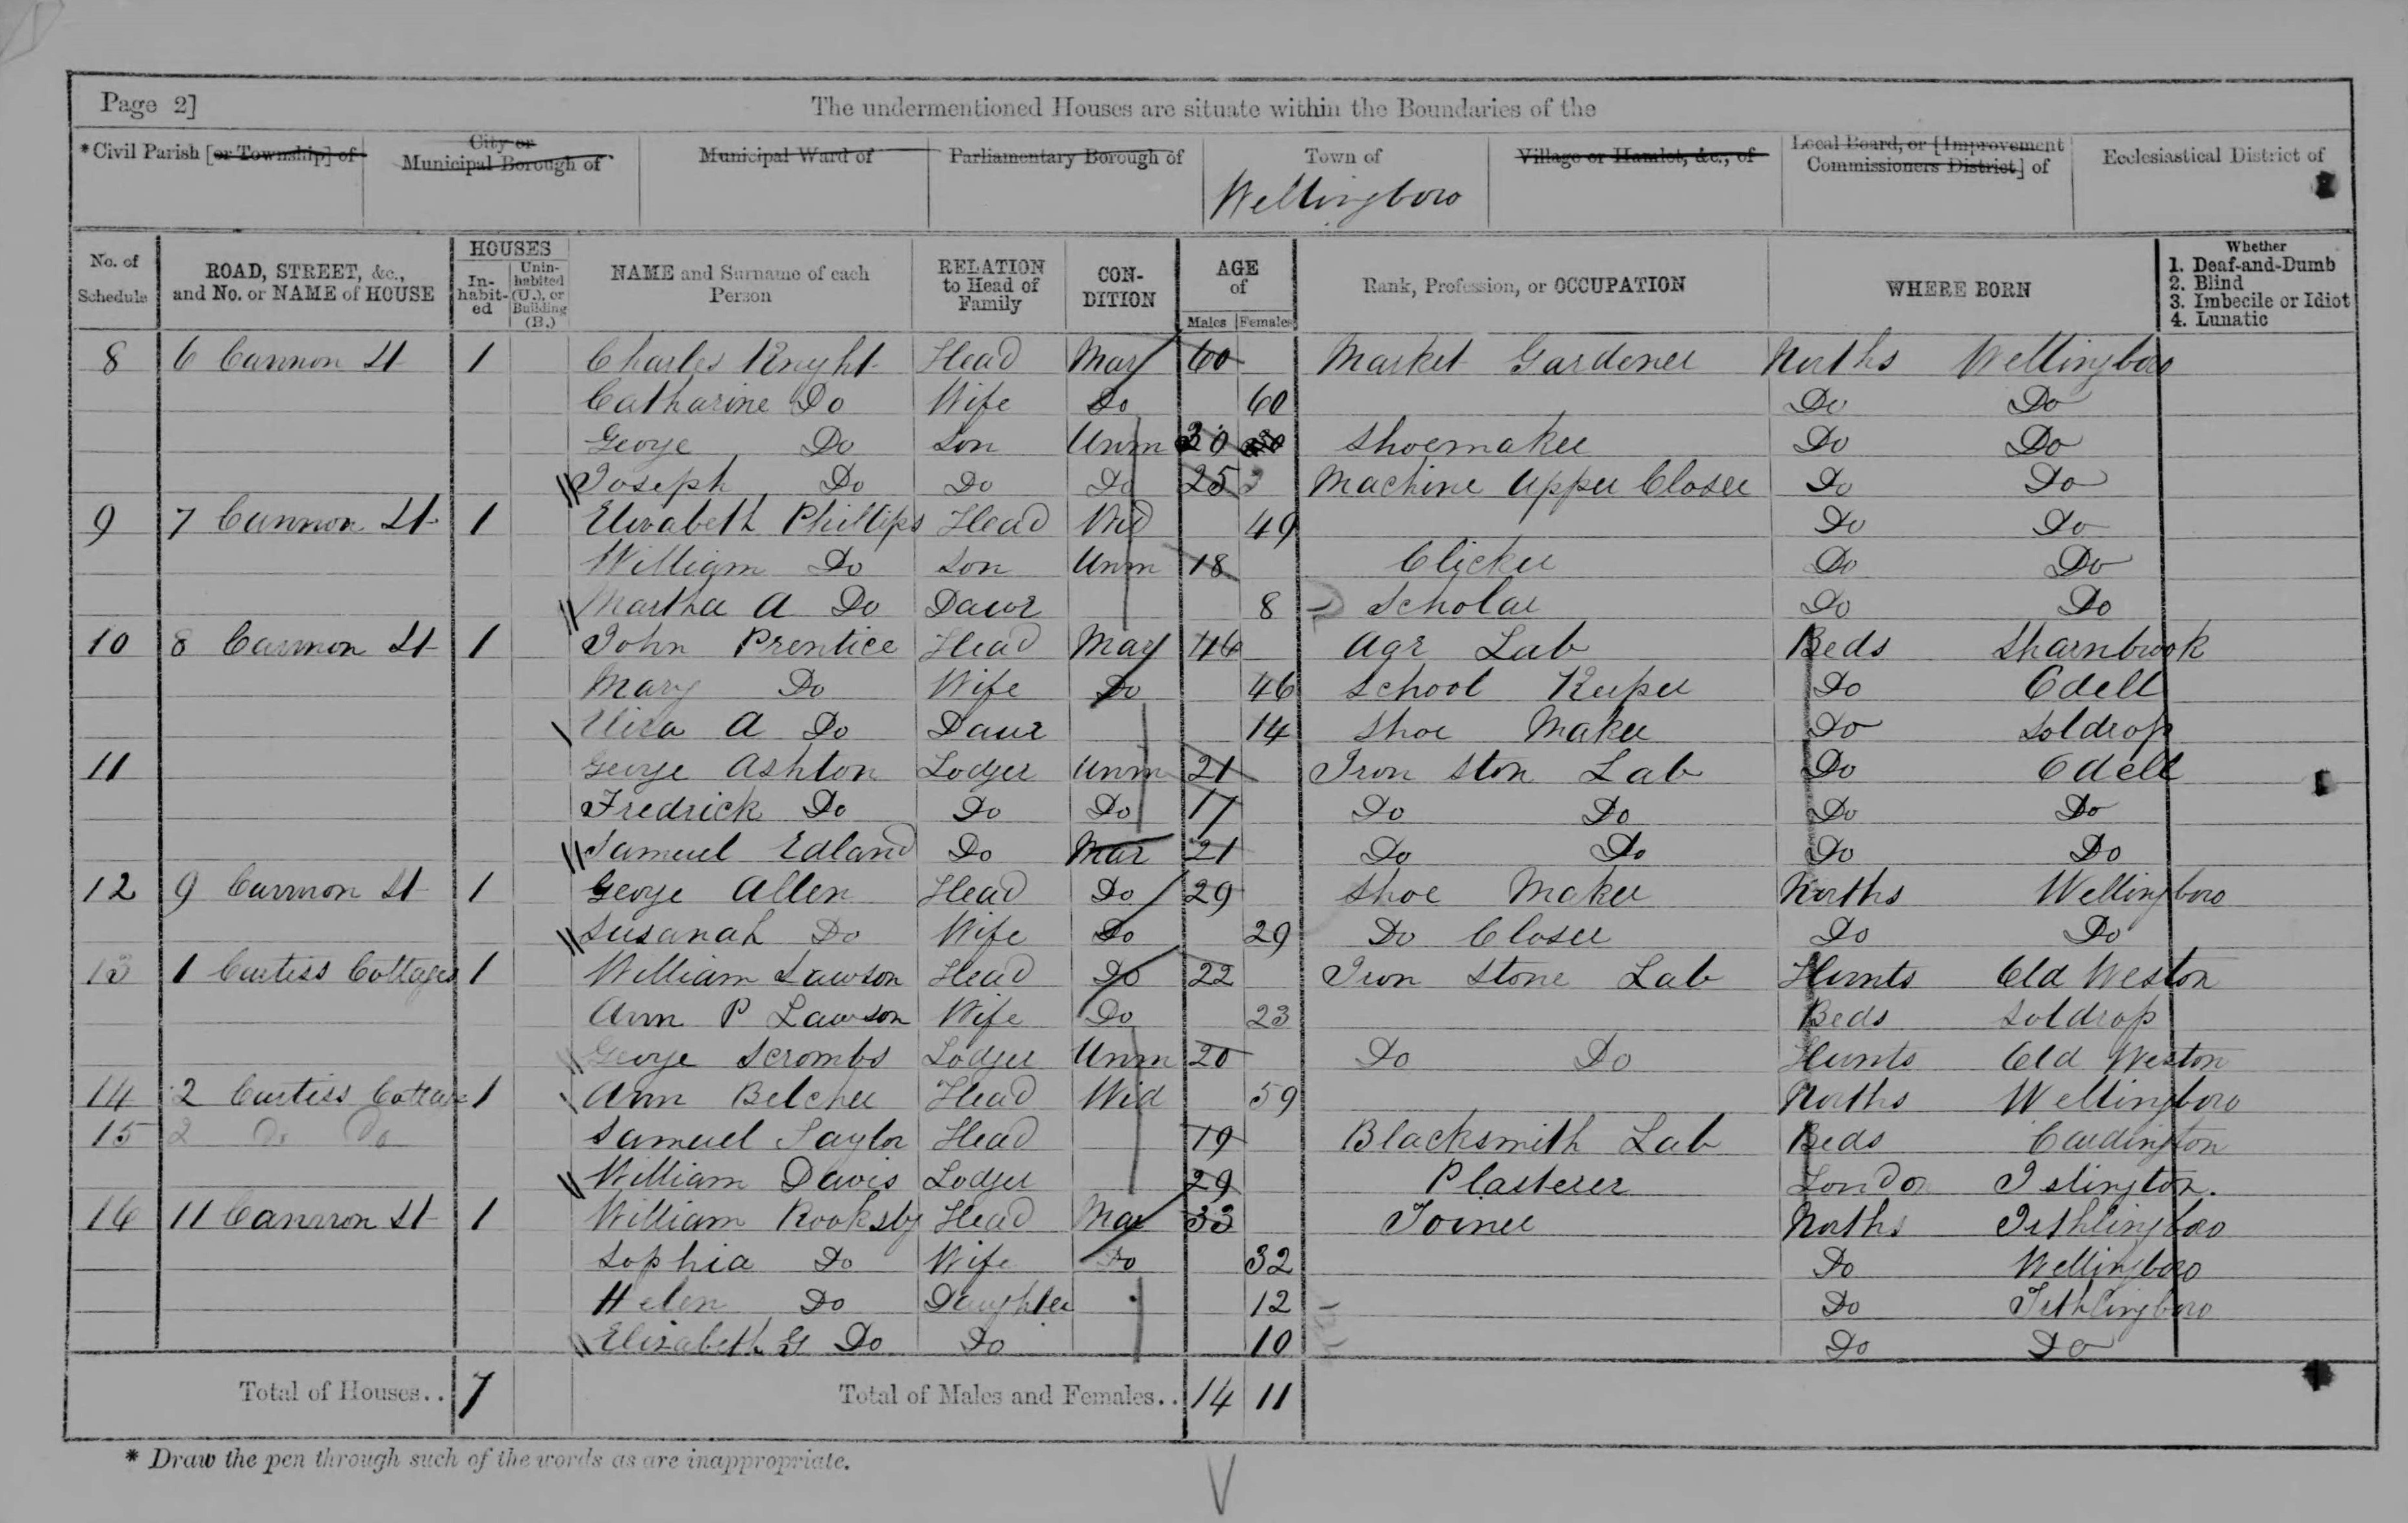 Page 2] The undermentioned Houses are situate within the Boundaries of the
* Civil Parish [or Township] of City or Municipal Borough of Municipal Ward of Parliamentary Borough of Town of Village or Hamlet, &c., of Local Board, or [Improvement Commissioners District] of Ecclesiastical District of
Wellingboro
No. of Schedule ROAD, STREET, &c., and No. or NAME of HOUSE HOUSES In-habit-ed Unin-habited (U.), or Building (B.) NAME and Surname of each Person RELATION to Head of Family CON-DITION AGE of Males Females Rank, Profession, or OCCUPATION WHERE BORN Whether 1. Deaf-and-Dumb 2. Blind 3. Imbecile or Idiot 4. Lunatic
8 6 Cannon St 1 Charles Knight Head Mar 60 Market Gardener Norths Wellingboro
Catharine Do Wife Do 60 Do Do
George Do Son Unm 30 Shoemaker Do Do
Joseph Do Do Do 25 Machine Upper Closer Do Do
9 7 Cannon St 1 Elizabeth Phillips Head Wid 49 Do Do
William Do Son Unm 18 Clicker Do Do
Martha A Do Daur 8 Scholar Do Do
10 8 Cannon St 1 John Prentice Head Mar 46 Agr Lab Beds Sharnbrook
Mary Do Wife Do 46 School Keeper Do Odell
Eliza A Do Daur 14 Shoe Maker Do Soldrop
11 George Ashton Lodger Unm 21 Iron Ston Lab Do Odell
Fredrick Do Do Do 17 Do Do Do Do
Samuel Edland Do Mar 21 Do Do Do Do
12 9 Cannon St 1 George Allen Head Do 29 Shoe Maker Norths Wellingboro
Susanah Do Wife Do 29 Do Closer Do Do
13 1 Curtiss Cottages 1 William Lawson Head Do 22 Iron Stone Lab Hunts Old Weston
Ann P Lawson Wife Do 23 Beds Soldrop
George Scrombs Lodger Unm 20 Do Do Hunts Old Weston
14 2 Curtiss Cottage 1 Ann Belcher Head Wid 59 Norths Wellingboro
15 2 Do Do Samuel Taylor Head 19 Blacksmith Lab Beds Cardington
William Davis Lodger 29 Plasterer London Islington.
16 11 Cannon St 1 William Rooksby Head Mar 33 Joiner Norths Irthlingboro
Sophia Do Wife Do 32 Do Wellingboro
Helen Do Daughter 12 Do Irthlingboro
Elizabeth G Do Do 10 Do Do
Total of Houses.. 7 Total of Males and Females.. 14 11
* Draw the pen through such of the words as are inappropriate.